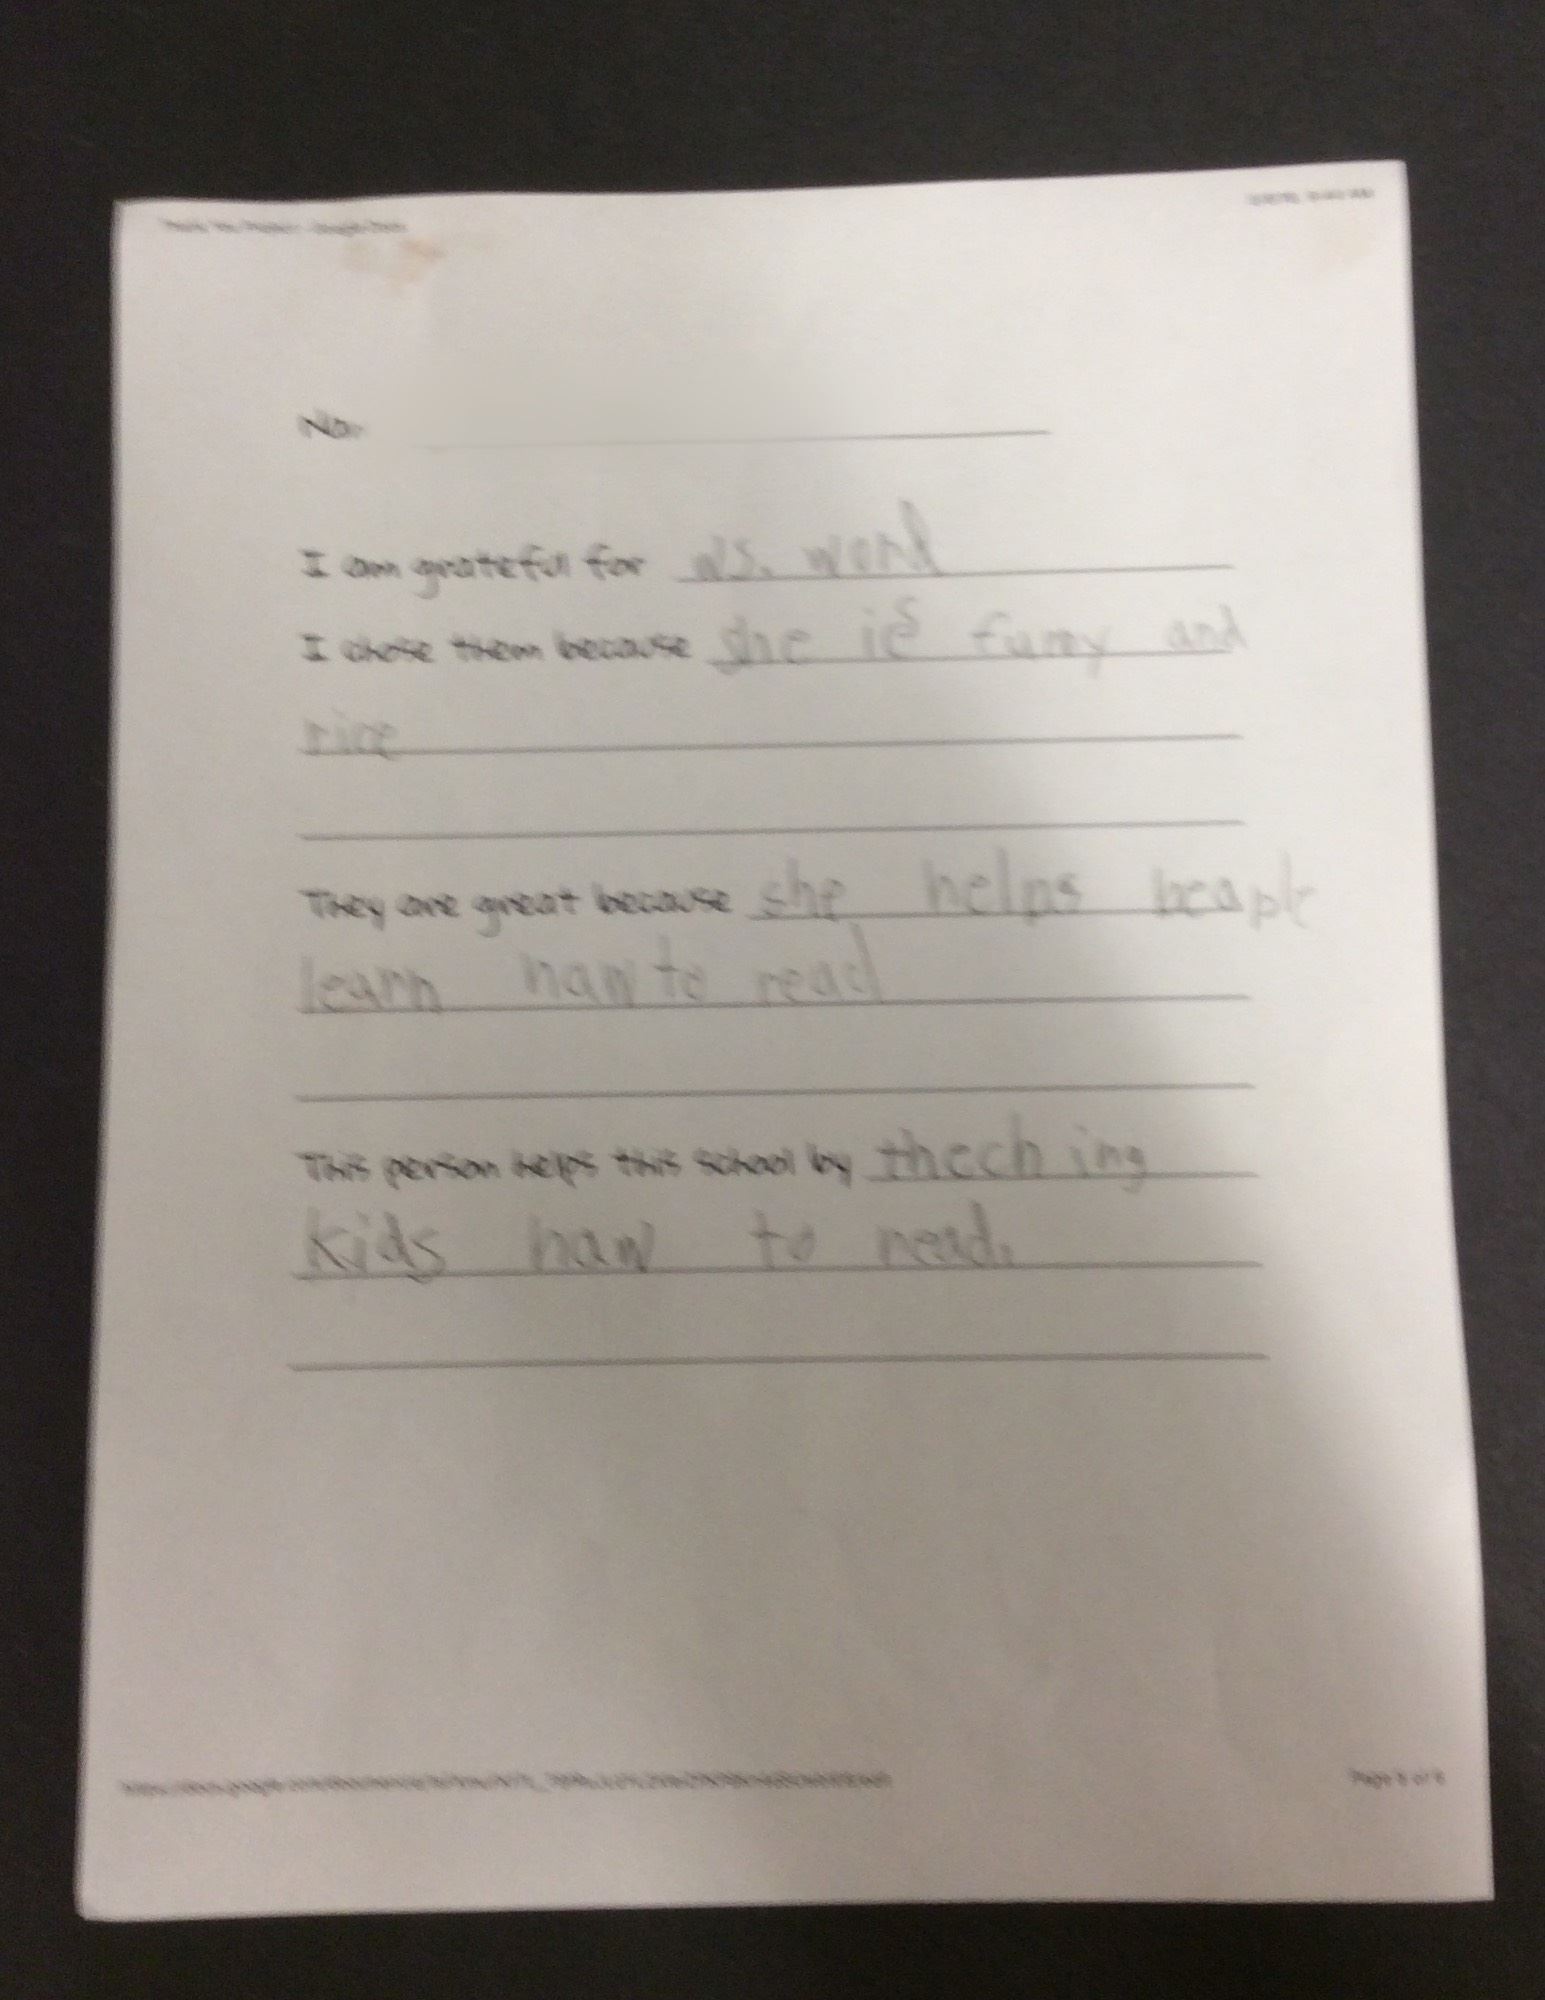 Thank You Project - Google Docs
I am grateful for Ms. word
I chose them because she ies funny and
nice
They are great because she helps beaple
learn haw to read
This person helps this school by theching
kids haw to read.
Page 6 of 6